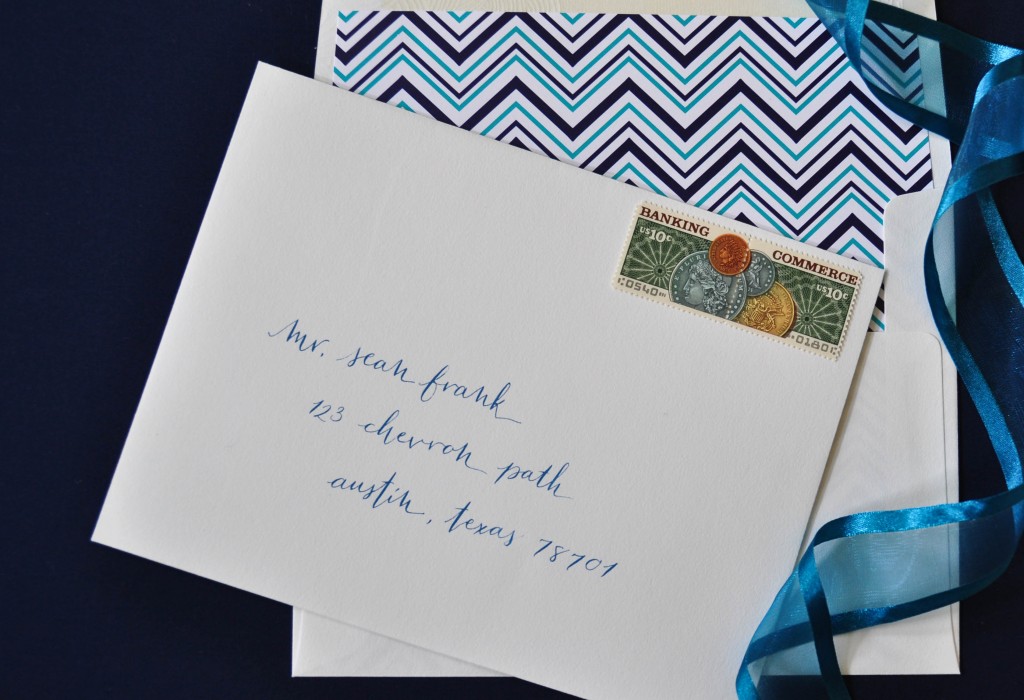 BANKING
COMMERCE
US10c
US10c
mr. sean frank
123 chevron path
austin, texas 78701